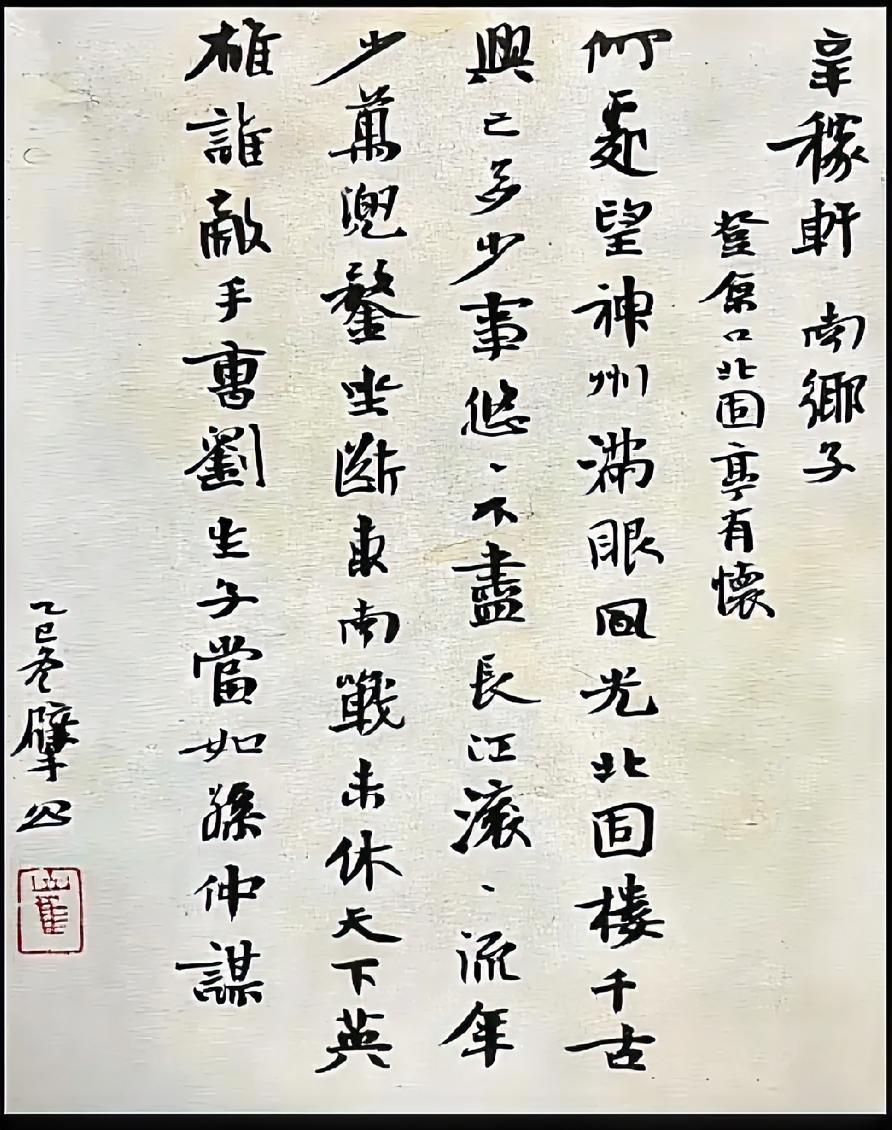 辛稼軒 南鄉子
登京口北固亭有懷
何處望神州滿眼風光北固楼千古
興亡多少事悠、不盡長江滾、流年
少萬兜鍪坐斷東南戰未休天下英
雄誰敵手曹劉生子當如孫仲謀
乙巳冬擘公
崔